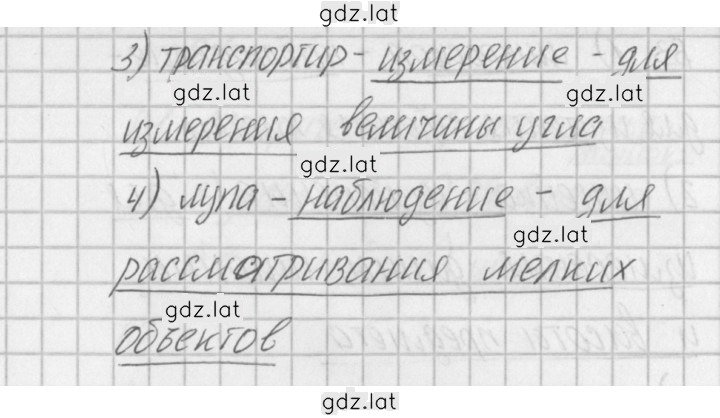 gdz.lat
3) транспортир - измерение - для
gdz.lat gdz.lat
измерения величины угла
gdz.lat
4) лупа - наблюдение - для
gdz.lat
рассматривания мелких
gdz.lat
объектов
gdz.lat